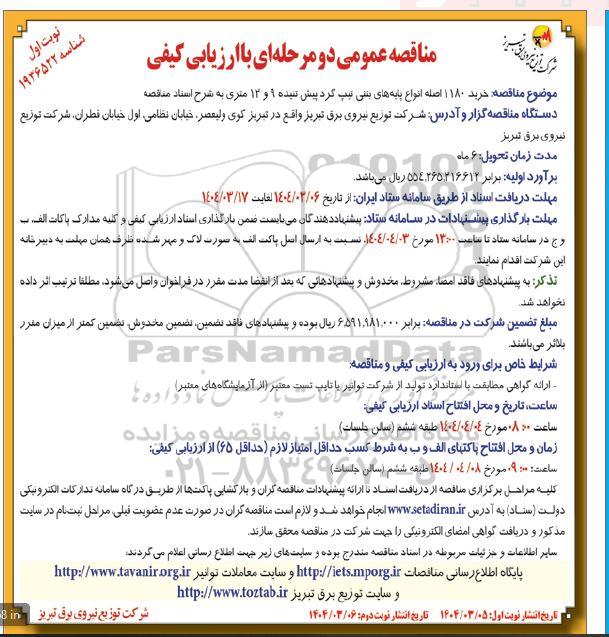 نوبت اول
شناسه ۱۹۳۶۵۲۲
شرکت توزیع نیروی برق تبریز
مناقصه عمومی دو مرحله‌ای با ارزیابی کیفی
موضوع مناقصه: خرید ۱۱۸۰ اصله انواع پایه‌های بتنی تیپ گرد پیش تنیده ۹ و ۱۲ متری به شرح اسناد مناقصه
دستگاه مناقصه‌گزار و آدرس: شرکت توزیع نیروی برق تبریز واقع در تبریز کوی ولیعصر، خیابان نظامی، اول خیابان قطران، شرکت توزیع
نیروی برق تبریز
مدت زمان تحویل: ۶ ماه
برآورد اولیه: برابر ۵۵۴,۲۶۵,۲۱۶,۶۱۲ ریال می‌باشد.
مهلت دریافت اسناد از طریق سامانه ستاد ایران: از تاریخ ۱۴۰۴/۰۳/۰۶ لغایت ۱۴۰۴/۰۳/۱۷
مهلت بارگذاری پیشنهادات در سامانه ستاد: پیشنهاددهندگان می‌بایست ضمن بارگذاری اسناد ارزیابی کیفی و کلیه مدارک پاکات الف، ب
و ج در سامانه ستاد تا ساعت ۱۳:۰۰ مورخ ۱۴۰۴/۰۴/۰۳، نسبت به ارسال اصل پاکت الف به صورت لاک و مهر شده ظرف همان مهلت به دبیرخانه
این شرکت اقدام نمایند.
تذکر: به پیشنهادهای فاقد امضا، مشروط، مخدوش و پیشنهادهائی که بعد از انقضا مدت مقرر در فراخوان واصل می‌شود، مطلقا ترتیب اثر داده
نخواهد شد.
مبلغ تضمین شرکت در مناقصه: برابر ۶,۵۹۱,۹۸۱,۰۰۰ ریال بوده و پیشنهادهای فاقد تضمین، تضمین مخدوش، تضمین کمتر از میزان مقرر
بلااثر می‌باشند.
شرایط خاص برای ورود به ارزیابی کیفی و مناقصه:
- ارائه گواهی مطابقت با استاندارد تولید از شرکت توانیر یا تایپ تست معتبر (از آزمایشگاه‌های معتبر)
ساعت، تاریخ و محل افتتاح اسناد ارزیابی کیفی:
ساعت ۰۸:۰۰ مورخ ۱۴۰۴/۰۴/۰۴ طبقه ششم (سالن جلسات)
زمان و محل افتتاح پاکتهای الف و ب به شرط کسب حداقل امتیاز لازم (حداقل ۶۵) از ارزیابی کیفی:
ساعت: ۰۹:۰۰ مورخ ۱۴۰۴/۰۴/۰۸ طبقه ششم (سالن جلسات)
کلیه مراحل برگزاری مناقصه از دریافت اسناد تا ارائه پیشنهادات مناقصه‌گران و بازگشایی پاکت‌ها از طریق درگاه سامانه تدارکات الکترونیکی
دولت (ستاد) به آدرس www.setadiran.ir انجام خواهد شد و لازم است مناقصه‌گران در صورت عدم عضویت قبلی، مراحل ثبت‌نام در سایت
مذکور و دریافت گواهی امضای الکترونیکی را جهت شرکت در مناقصه محقق سازند.
سایر اطلاعات و جزئیات مربوطه در اسناد مناقصه مندرج بوده و سایت‌های زیر جهت اطلاع رسانی اعلام می‌گردند:
پایگاه اطلاع‌رسانی مناقصات http://iets.mporg.ir و سایت معاملات توانیر http://www.tavanir.org.ir
و سایت توزیع برق تبریز http://www.toztab.ir
تاریخ انتشار نوبت اول: ۱۴۰۴/۰۳/۰۵ تاریخ انتشار نوبت دوم: ۱۴۰۴/۰۳/۰۶
شرکت توزیع نیروی برق تبریز
ParsNamadData
۰۲۱-۸۸۳۴۹۶۷۰-۵